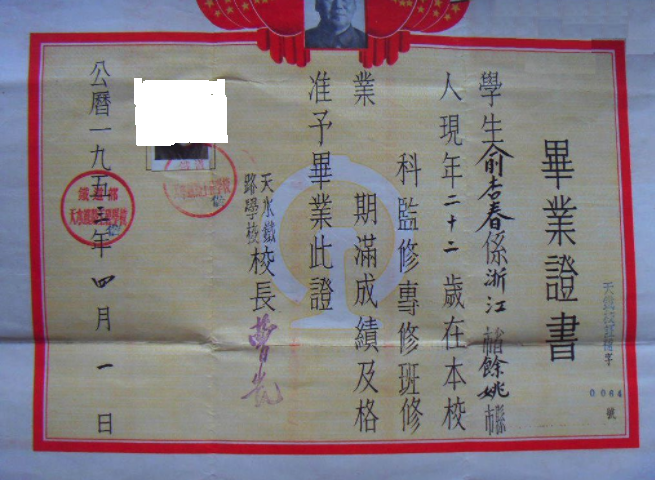 畢業證書
0064
號
學生俞杏春係浙江省餘姚縣市
人現年二十二歲在本校
科監修專修班修
業期滿成績及格
准予畢業此證
天水鐵路學校校長
公曆一九五三年四月一日
鐵道部